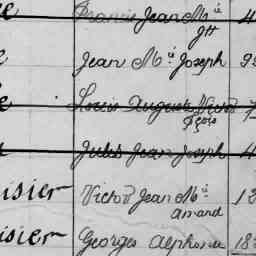 Francis Jean M^ie 4
Jh
Jean M^ie Joseph
Louis Auguste Victor
Fçois
Jules Jean Joseph 4
isier Victor Jean M^ie 13
Amand
isier Georges Alphonse 18